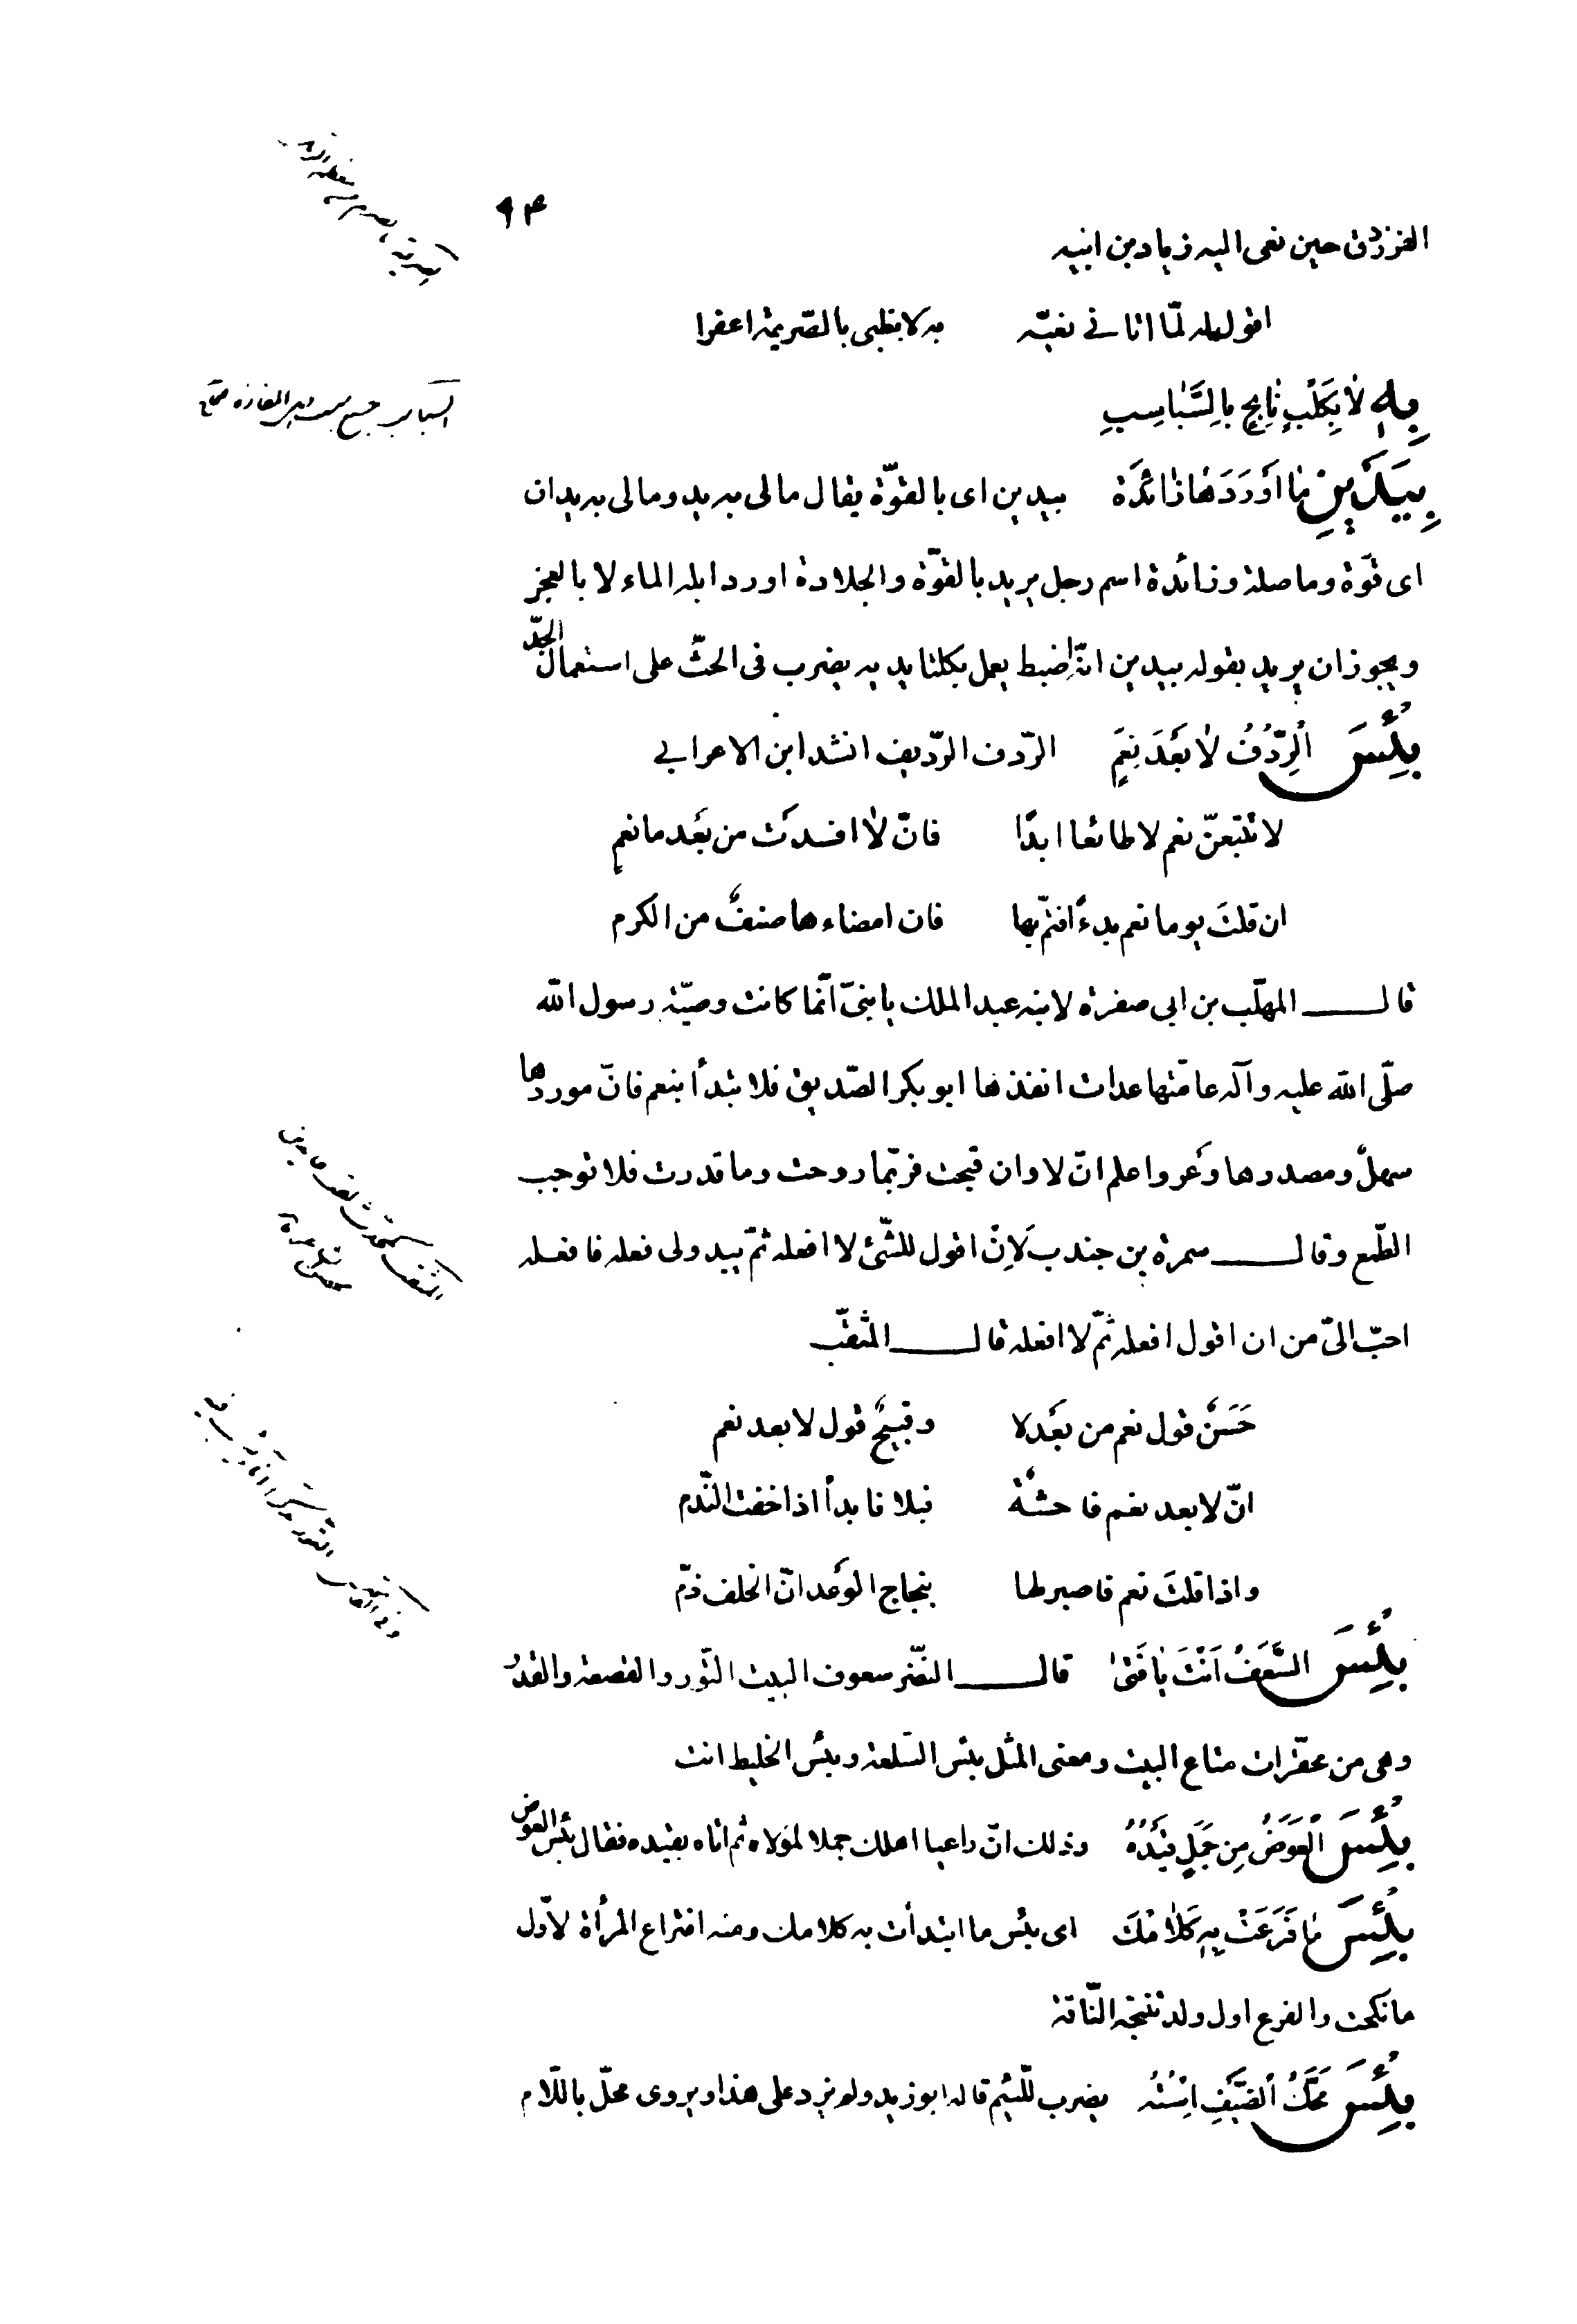 ٩۴
الفرزدق حين نعى اليه زياد بن ابيه
اقول له لمّا اتانى نعيّه به لا بظبى بالصّريمة اعفرا
بِهِ لٰا بِكَلْبٍ نٰابِحٍ بِالسَّبٰاسِبِ
السباسب جمع سبسب وهى المفازه
بِيَدَيْنِ مٰا اَوْرَدَهٰا زٰائدَة بيدين اى بالقوّة يقال مالى به يد ومالى به يدان
اى قوّة وما صلة وزائدة اسم رجل يريد بالقوّة والجلادة اورد ابله الماء لا بالعجز
ويجوز ان يريد بقوله بيدين انّه اضبط يعمل بكلتا يديه يضرب فى الحثّ على استعمال الجدّ
بِئْسَ الرِّدْفُ لٰا بَعْدَ نِعَمٍ الرّدف الرّديف انشد ابن الاعرابى
لا تتبعنّ نعم لا طائعا ابدًا فانّ لٰا افسدَت من بَعْد ما نعمٍ
ان قلتَ يوما نعم بدءً افتمّ بها فان امضاءها صنفٌ من الكرم
قال المهلّب بن ابى صفرة لابنه عبد الملك يا بنىّ انّما كانت وصيّة رسول الله
صلّى الله عليه وآله عامّتها عدات انفذها ابو بكر الصّديق فلا تبدأ بنعم فانّ موردها
سهلٌ ومصدرها وَعر واعلم انّ لا وان قبحت فربّما روحت وما قدرت فلا توجب
الطّمع وقال سمرة بن جندب لَاِنْ اقول للشّئ لا افعله ثمّ يبدو لى فعله فافعله
احبّ الىّ من ان اقول افعله ثمّ لا افعله قال المثقّب
حَسَنٌ قول نعم من بَعْد لا وقبيحٌ قول لا بعد نعم
انّ لا بعد نعم فاحشةٌ فبلا فابدأ اذا خفت النّدم
واذا قلتَ نعم فاصبر لها بنجاح الوَعد انّ الخلف ذمّ
بِئْسَ السَّعَفُ اَنْتَ يٰا فَتٰى قال النّضر سعوف البيت التّور والقصعة والقدْرُ
وهى من محقّرات متاع البيت ومعنى المثل بئس السّلعة وبئس الخليط انت
بِئْسَ الْعَوَضُ مِن جَمَلٍ قَيْدُهُ وذلك انّ راعيا اهلك جملا لمَولاه ثم اتاه بقيده فقال بئس العوض
بِئْسَ مٰا فَرَعَتْ بِهِ كَلٰامَكَ اى بئس ما ابتدأت به كلامك ومنه افتراع المرأة لاوّل
ما نكحت والفرع اول ولد تنتجه النّاقة
بِئْسَ مَحَكُّ الضَّيْفِ اِسْتُهُ يضرب للّئيم قاله ابو زيد ولم يزد على هذا ويروى محلّ باللّام